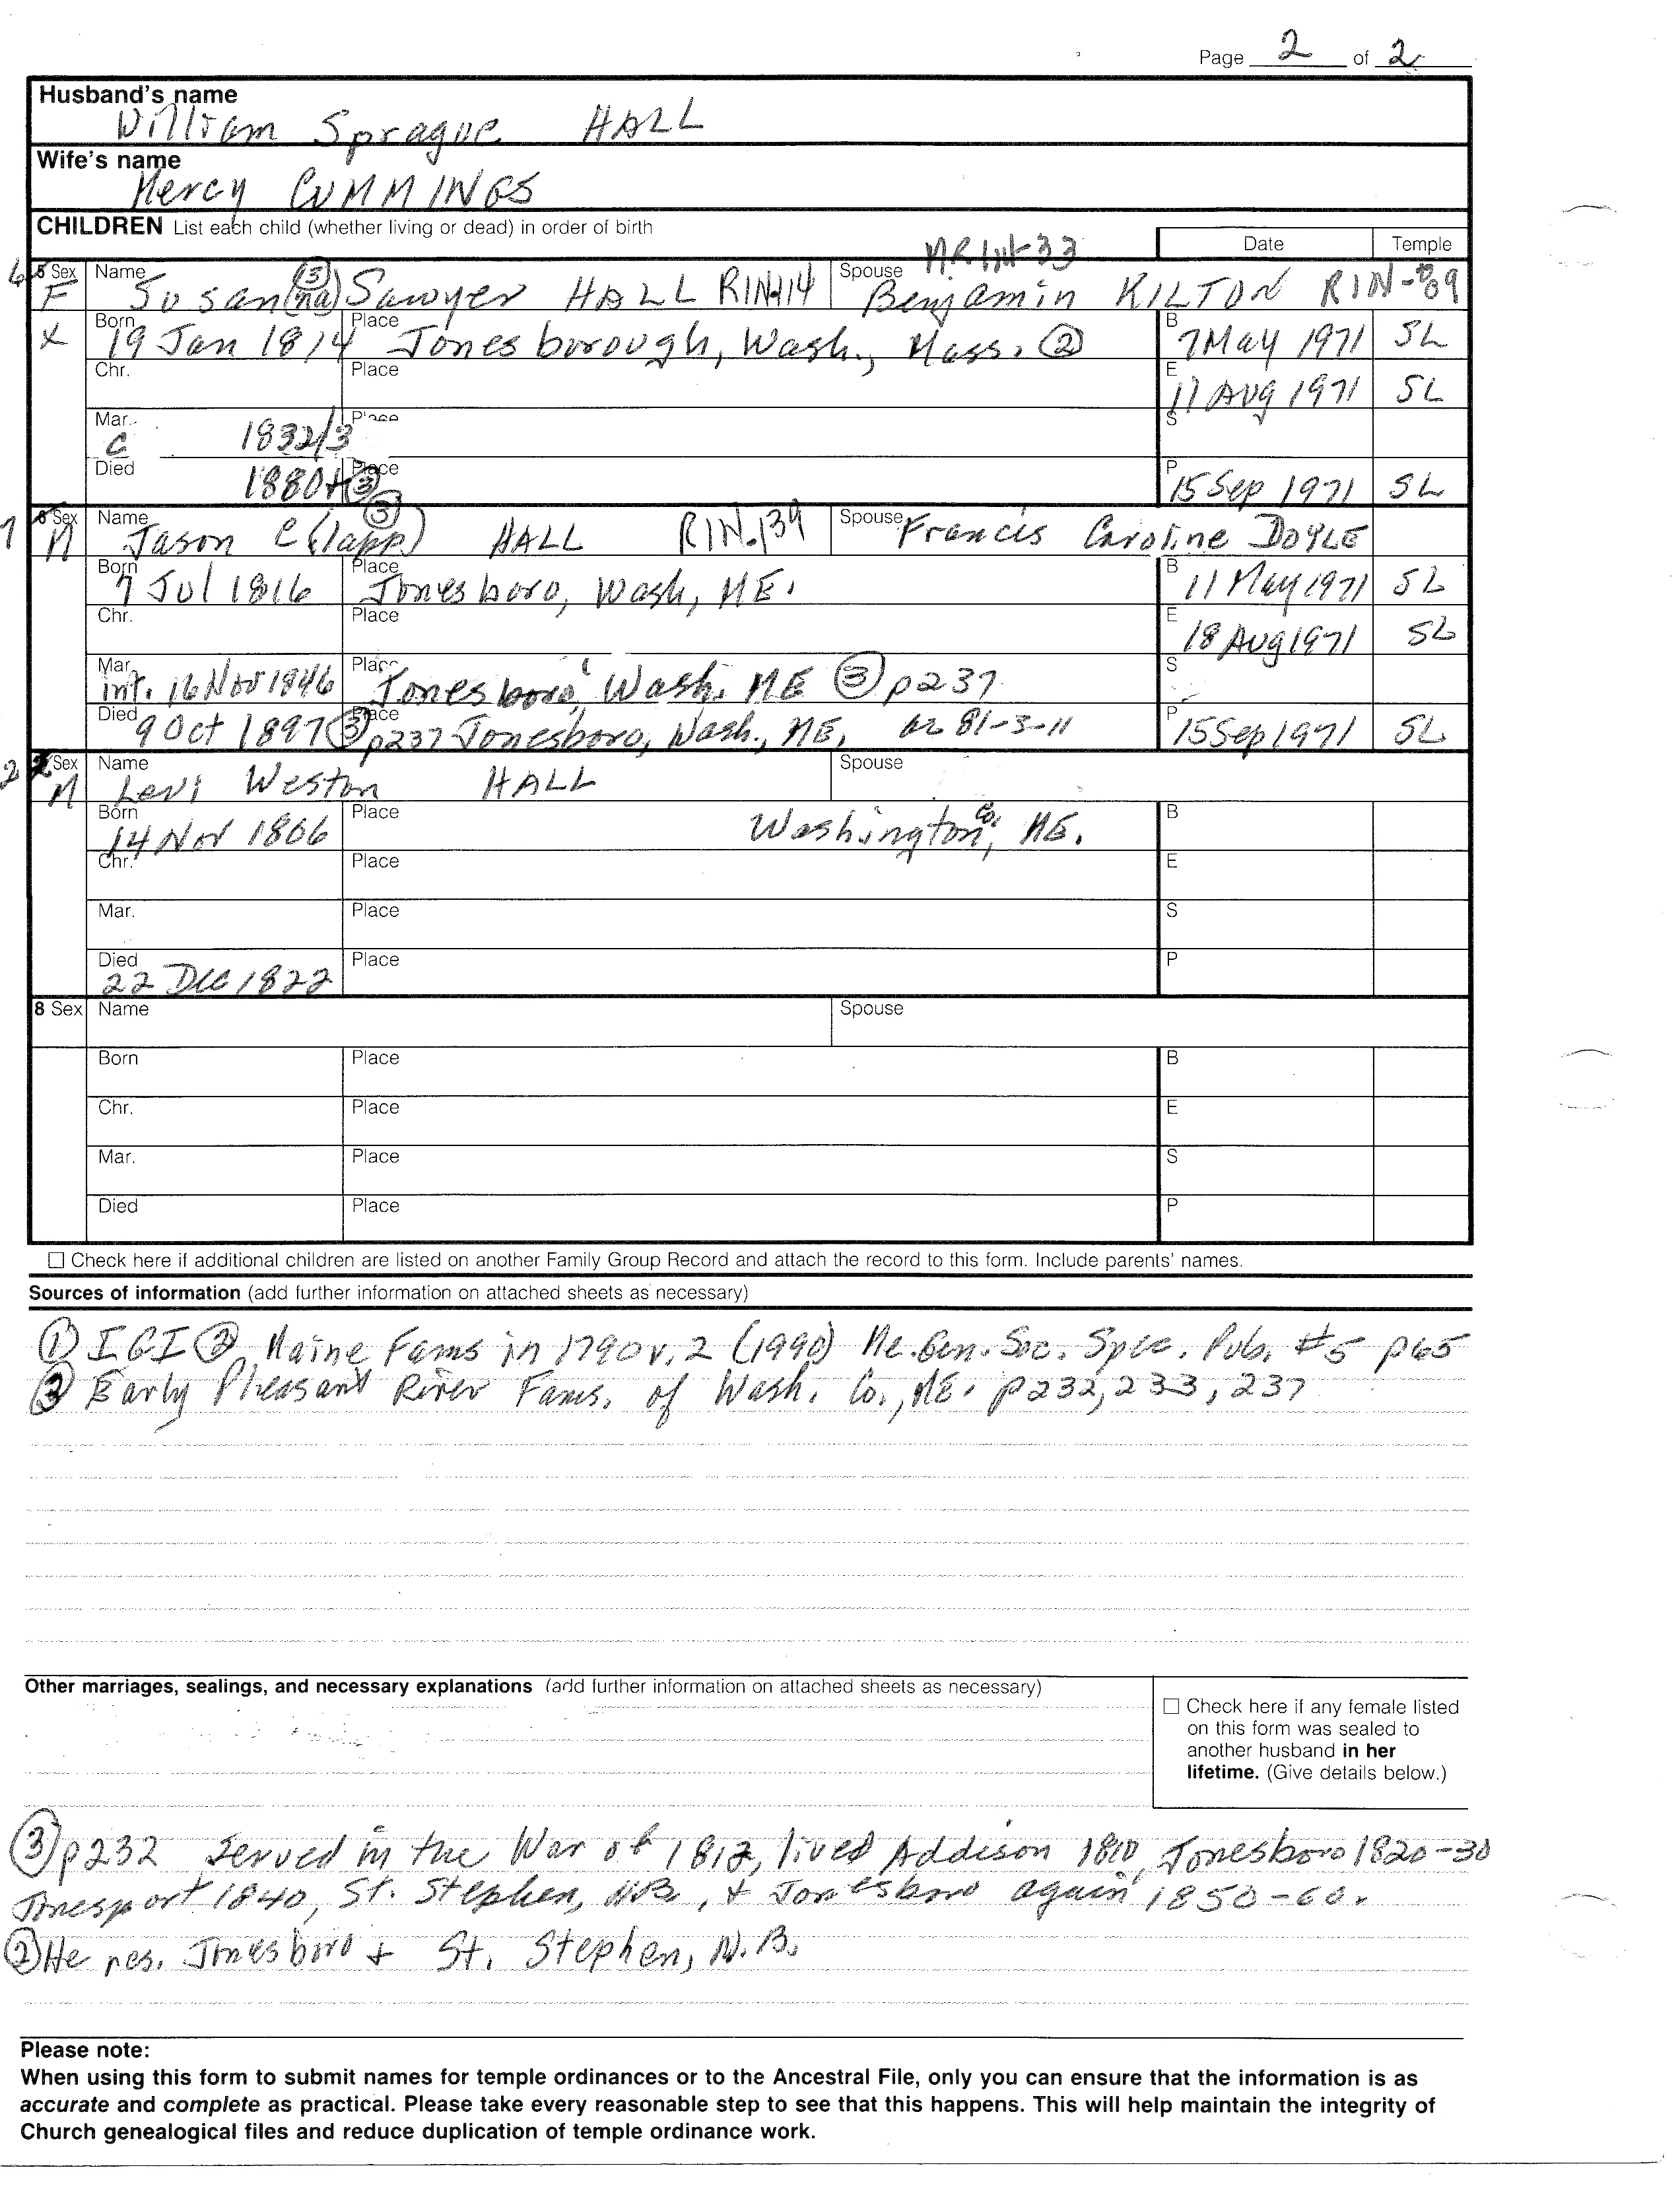 Page 2 of 2
Husband's name
William Sprague HALL
Wife's name
Mercy CUMMINGS
CHILDREN List each child (whether living or dead) in order of birth
Date Temple
6 5 Sex Name Susan(na) ③ Sawyer HALL RIN-114 Spouse Benjamin KILTON RIN- MRIN-33
F
X Born 19 Jan 1814 Place Jonesborough, Wash., Mass. ② B 7 May 1971 SL
Chr. Place E 11 Aug 1971 SL
Mar. C 1832/3 Place S
Died 1880+ ③ Place P 15 Sep 1971 SL
7 6 Sex Name Jason C(lapp) ③ HALL RIN.139 Spouse Francis Caroline DOYLE
M
Born 7 Jul 1816 Place Jonesboro, Wash, ME. B 11 May 1971 SL
Chr. Place E 18 Aug 1971 SL
Mar. int. 16 Nov 1846 Place Jonesboro, Wash. ME ③ p237 S
Died 9 Oct 1897 ③ p237 Place Jonesboro, Wash., ME, ae 81-3-11 P 15 Sep 1971 SL
2 Sex Name Levi Weston HALL Spouse
M
Born 14 Nov 1806 Place Washington Co, ME. B
Chr. Place E
Mar. Place S
Died 22 Dec 1822 Place P
8 Sex Name Spouse
Born Place B
Chr. Place E
Mar. Place S
Died Place P
☐ Check here if additional children are listed on another Family Group Record and attach the record to this form. Include parents' names.
Sources of information (add further information on attached sheets as necessary)
① IGI ② Maine Fams in 1790 v. 2 (1990) Me. Gen. Soc. Spec. Pub. #5 p65
③ Early Pleasant River Fams. of Wash. Co., ME. p232, 233, 237
Other marriages, sealings, and necessary explanations (add further information on attached sheets as necessary)
☐ Check here if any female listed
on this form was sealed to
another husband in her
lifetime. (Give details below.)
③ p232 Served in the War of 1812, lived Addison 1810, Jonesboro 1820-30
Jonesport 1840, St. Stephen, N.B., + Jonesboro again 1850-60.
② He res. Jonesboro + St. Stephen, N.B.
Please note:
When using this form to submit names for temple ordinances or to the Ancestral File, only you can ensure that the information is as
accurate and complete as practical. Please take every reasonable step to see that this happens. This will help maintain the integrity of
Church genealogical files and reduce duplication of temple ordinance work.